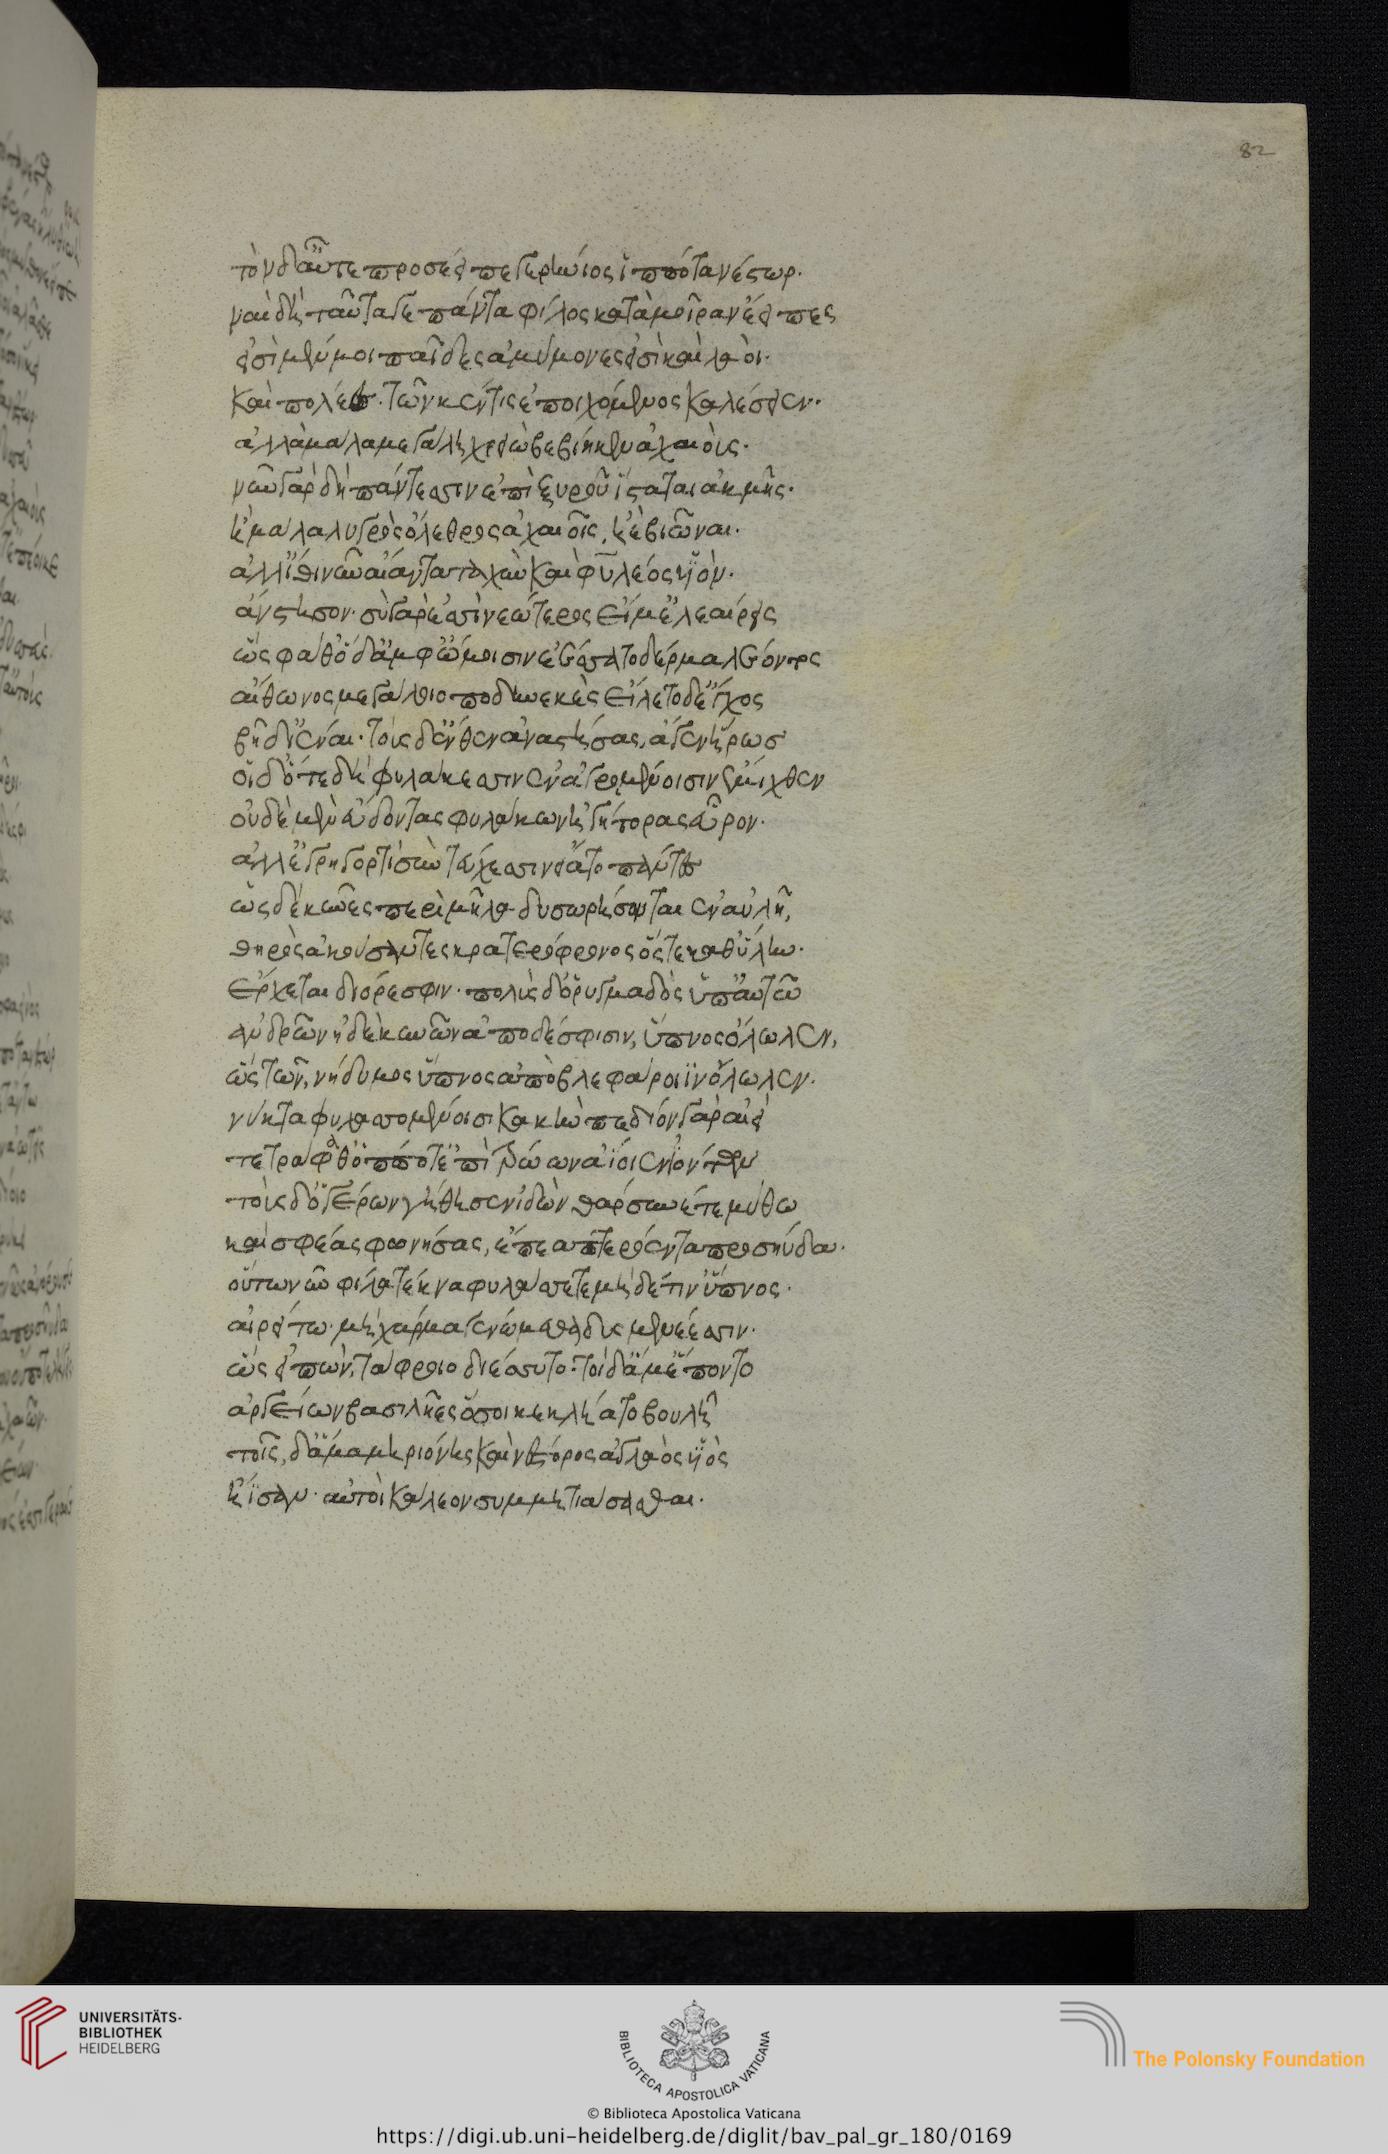 82
τὸν δ' αὖτε προσέειπε γερήνιος ἱππότα νέστωρ.
ναὶ δὴ ταῦτά γε πάντα φίλος κατὰ μοῖραν ἔειπες
εἰσὶ μέν μοι παῖδες ἀμύμονες εἰσὶ καὶ λαοὶ.
καὶ πολέες. τῶν κέν τις ἐποιχόμενος καλέσειεν.
ἀλλὰ μάλα μεγάλη χρειὼ βεβίηκεν ἀχαιοὺς.
νῦν γὰρ δὴ πάντεσσιν ἐπὶ ξυροῦ ἵσταται ἀκμῆς.
ἢ μάλα λυγρὸς ὄλεθρος ἀχαιοῖς, ἠὲ βιῶναι.
ἀλλ' ἴθι νῦν αἴαντα ταχὺν καὶ φυλέος υἱὸν.
ἄνστησον. σὺ γὰρ ἐσσὶ νεώτερος εἴ μ' ἐλεαίρεις
ὣς φάθ' ὃ δ' ἀμφ' ὤμοισιν ἑέσσατο δέρμα λέοντος
αἴθωνος μεγάλοιο ποδηνεκὲς εἵλετο δ' ἔγχος
βῆ δ' ἰέναι. τοὺς δ' ἔνθεν ἀναστήσας, ἄγεν ἥρωσ
οἳ δ' ὅτε δὴ φυλάκεσσιν ἐν ἀγρομένοισιν ἔμιχθεν
οὐδὲ μὲν εὕδοντας φυλάκων ἡγήτορας εὗρον.
ἀλλ' ἐγρηγορτὶ σὺν τεύχεσιν εἵατο πάντες
ὡς δὲ κύνες περὶ μῆλα δυσωρήσονται ἐν αὐλῆ,
θηρὸς ἀκούσαντες κρατερόφρονος ὅς τε καθ' ὕλην.
ἔρχεται δι' ὄρεσφιν. πολὺς δ' ὀρυμαγδὸς ὑπ' αὐτῶ
ἀνδρῶν ἠδὲ κυνῶν ἀπὸ δέ σφισιν, ὕπνος ὄλωλεν,
ὣς τῶν, νήδυμος ὕπνος ἀπὸ βλεφάροιϊν ὄλωλεν.
νύκτα φυλασσομένοισι κακὴν πεδίον γὰρ αἰεὶ
τετράφαθ' ὁππότ' ἐπὶ τρώων ἀΐοιεν ἰόντων
τοὺς δ' ὃ γέρων γήθησεν ἰδὼν θάρσυνέ τε μύθω
καί σφεας φωνήσας, ἔπεα πτερόεντα προσηύδα.
οὕτω νῦν φίλα τέκνα φυλάσσετε μὴ δέ τιν' ὕπνος.
αἱρείτω. μὴ χάρμα γενώμεθα δυσμενέεσσιν.
ὣς εἰπὼν, τάφροιο διέσσυτο. τοὶ δ' ἅμ' ἕποντο
ἀργείων βασιλῆες ὅσοι κεκλήατο βουλὴν
τοῖς, δ' ἅμα μηριόνης καὶ νέστορος ἀγλαὸς υἱὸς
ἤϊσαν. αὐτοὶ κάλεον συμμητιάσασθαι.
UNIVERSITÄTS-
BIBLIOTHEK
HEIDELBERG
BIBLIOTECA APOSTOLICA VATICANA
The Polonsky Foundation
© Biblioteca Apostolica Vaticana
https://digi.ub.uni-heidelberg.de/diglit/bav_pal_gr_180/0169